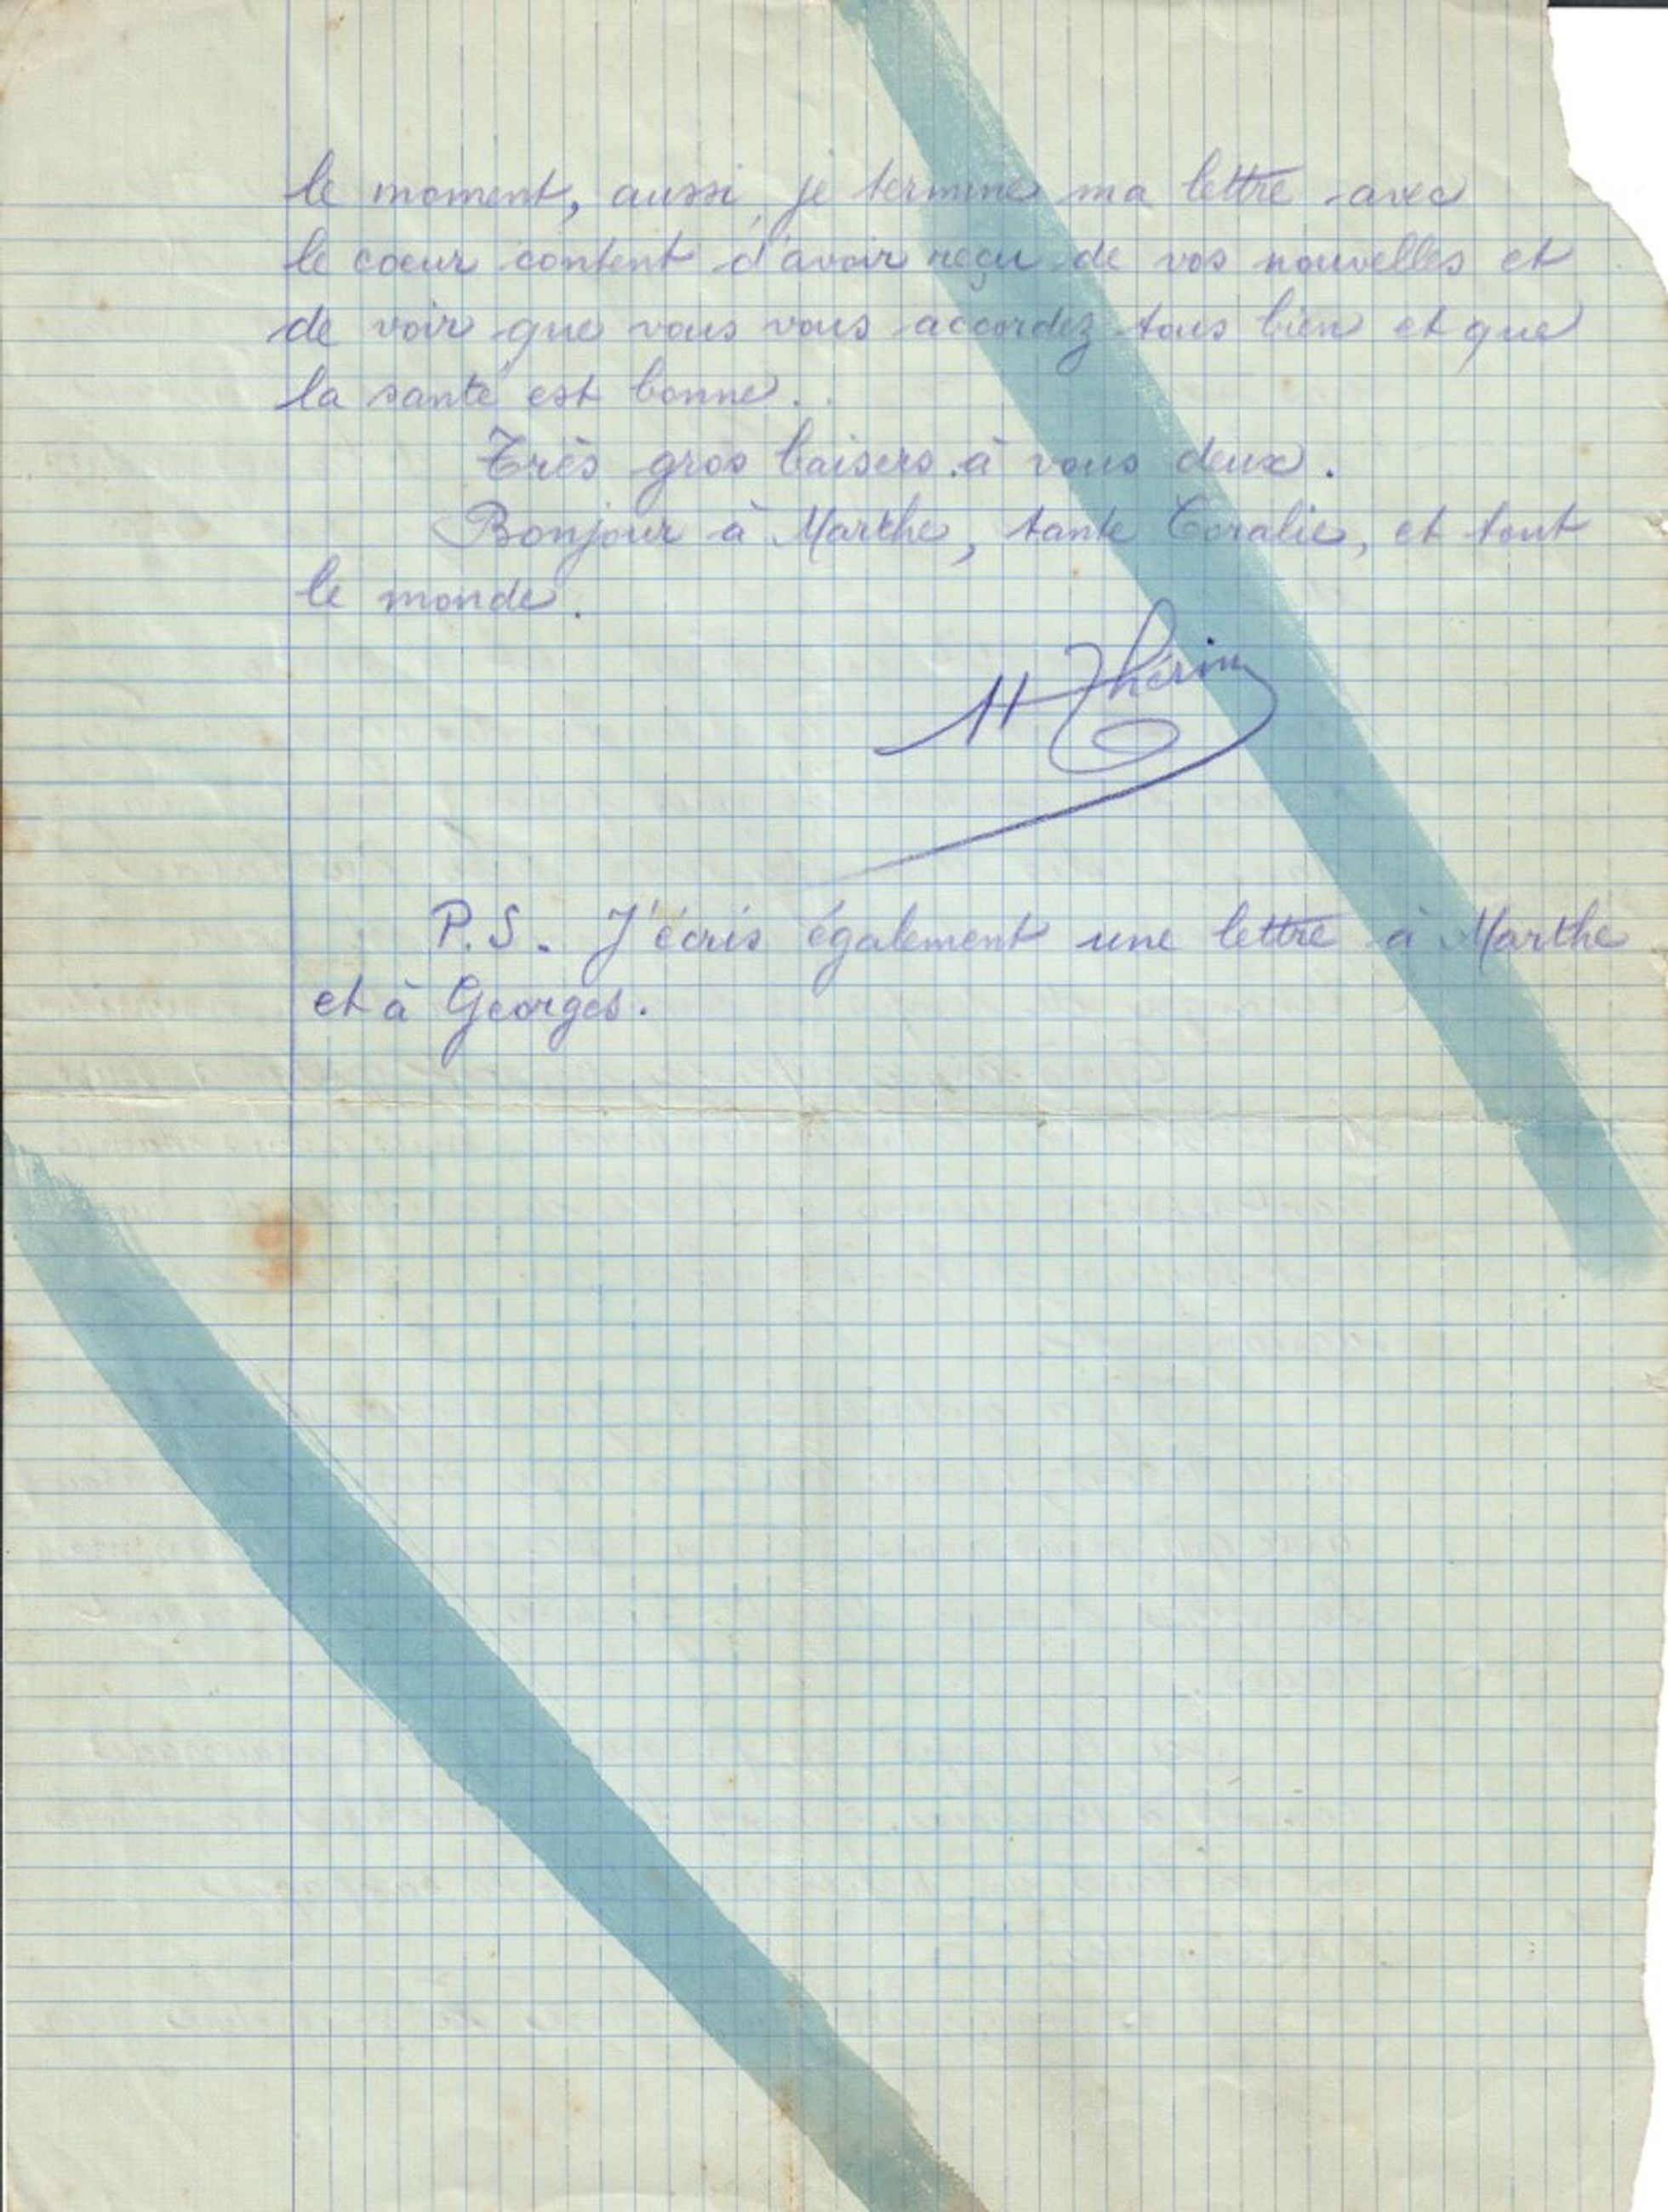 le moment, aussi, je termine ma lettre avec
le coeur content d'avoir reçu de vos nouvelles et
de voir que vous vous accordez tous bien et que
la santé est bonne.
Très gros baisers à vous deux.
Bonjour à Marthe, tante Coralie, et tout
le monde.
H Thérin
P.S. J'écris également une lettre à Marthe
et à Georges.